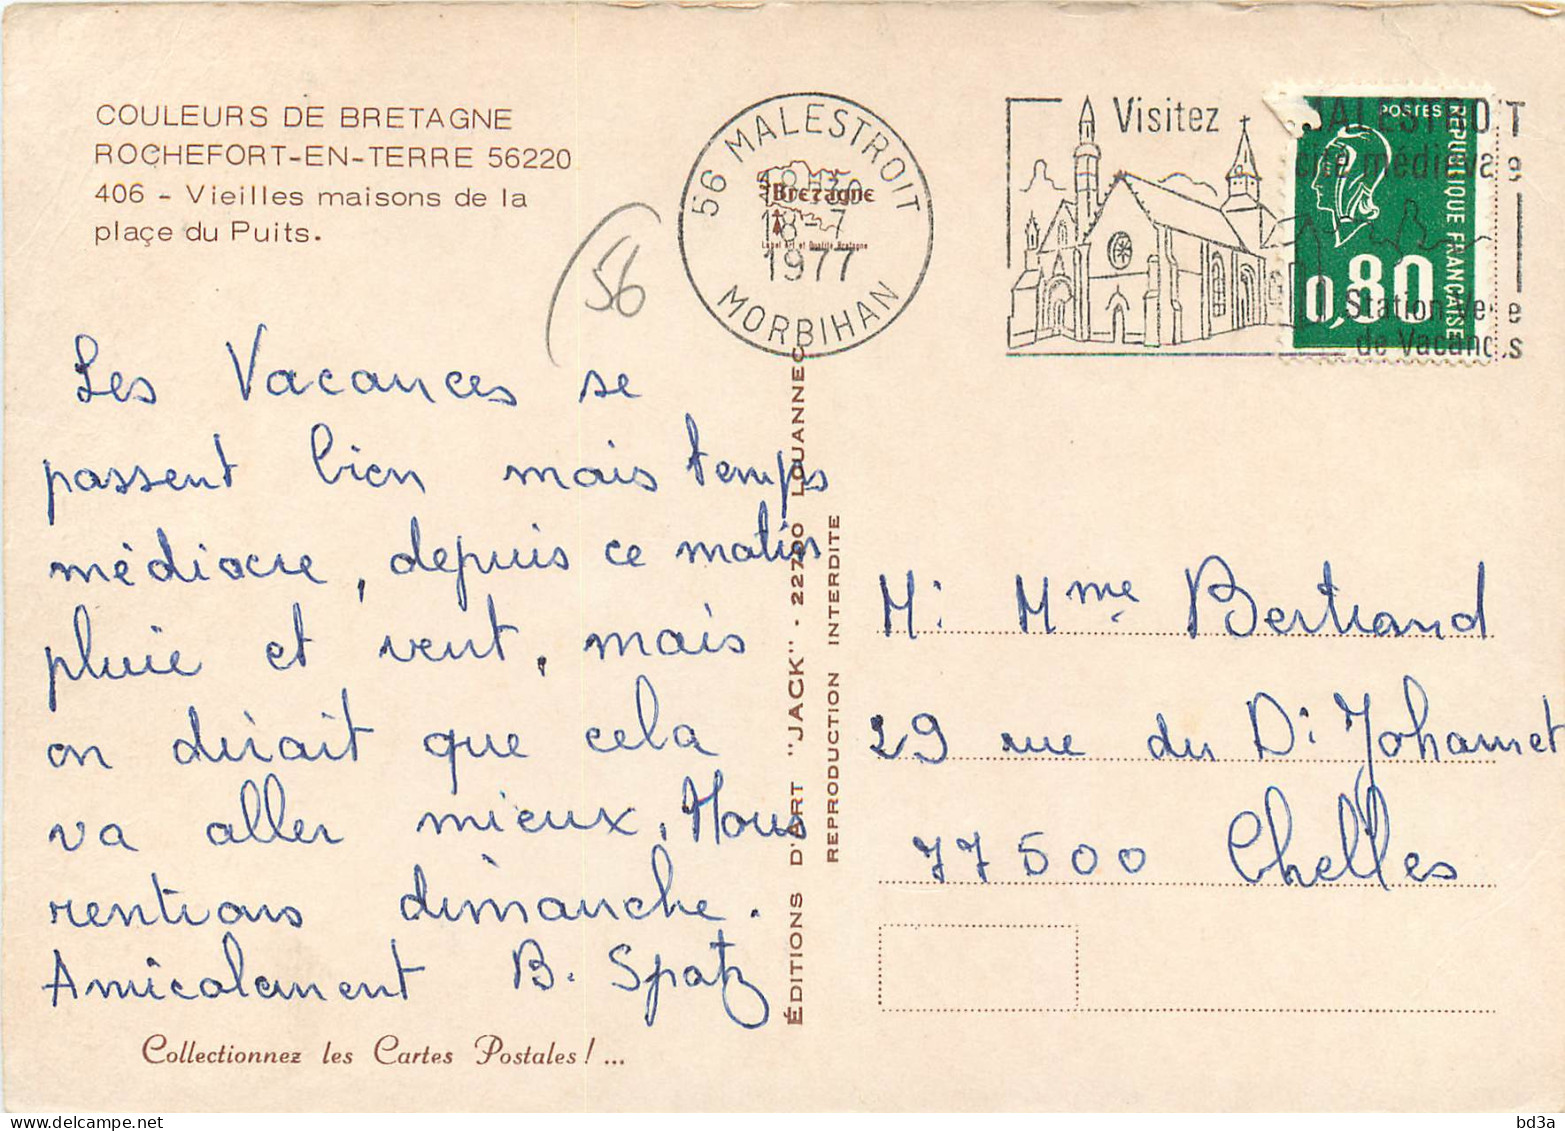 COULEURS DE BRETAGNE
ROCHEFORT-EN-TERRE 56220
406 - Vieilles maisons de la
plaçe du Puits.
56
56 MALESTROIT
18-7
1977
MORBIHAN
Bretagne
Label Art et Qualité Bretagne
Visitez MALESTROIT
cité médiévale
Station Verte
de Vacances
POSTES
REPUBLIQUE FRANÇAISE
0,80
Les Vacances se
passent bien mais temps
médiocre, depuis ce matin
pluie et vent, mais
on dirait que cela
va aller mieux. Nous
rentrons dimanche.
Amicalement B. Spatz
Collectionnez les Cartes Postales! ...
ÉDITIONS D'ART "JACK" - 22700 LOUANNEC
REPRODUCTION INTERDITE
M. Mme Bertrand
29 rue du D. Johamet
77500 Chelles
bd3a